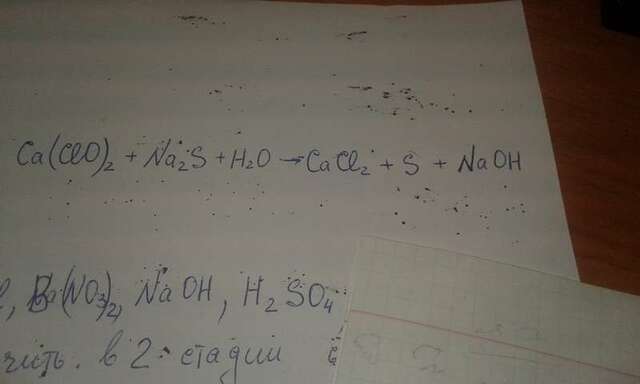 Ca(ClO)₂ + Na₂S + H₂O → CaCl₂ + S + NaOH
, Ba(NO₃)₂, NaOH, H₂SO₄
чить. в 2 стадии